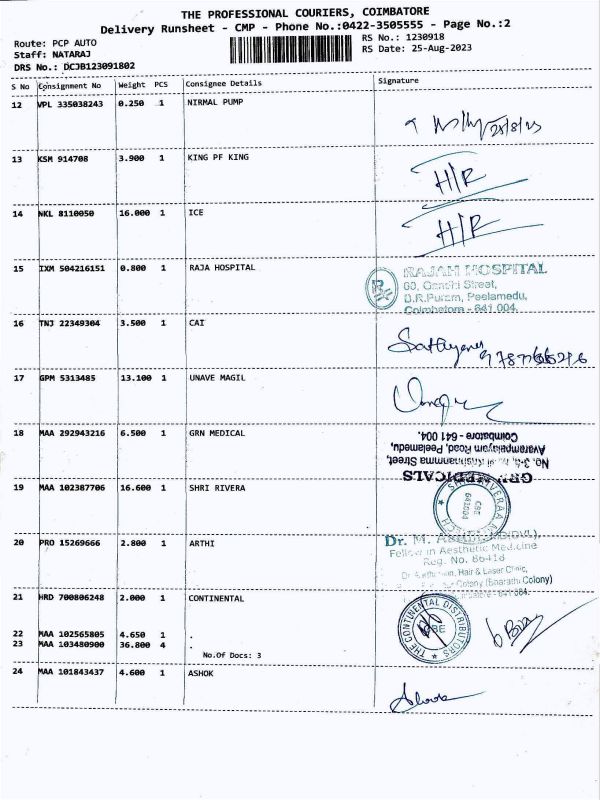 THE PROFESSIONAL COURIERS, COIMBATORE
Delivery Runsheet - CMP - Phone No.:0422-3505555 - Page No.:2
Route: PCP AUTO
RS No.: 1230918
Staff: NATARAJ
RS Date: 25-Aug-2023
DRS No.: DCJB123091802
S No Consignment No Weight PCS Consignee Details Signature
12 VPL 335038243 0.250 1 NIRMAL PUMP
28/8/23
13 KSM 914708 3.900 1 KING PF KING
H/R
14 NKL 8110050 16.000 1 ICE
H/R
15 IXM 504216151 0.800 1 RAJA HOSPITAL
RAJAH HOSPITAL
60, Gandhi Street,
B.R.Puram, Peelamedu,
Coimbatore - 641 004.
16 TNJ 22349304 3.500 1 CAI
17 GPM 5313485 13.100 1 UNAVE MAGIL
18 MAA 292943216 6.500 1 GRN MEDICAL
GRN MEDICALS
Avarampalayam Road, Peelamedu,
Coimbatore - 641 004.
19 MAA 102387706 16.600 1 SHRI RIVERA
CBE
641004
20 PRO 15269666 2.800 1 ARTHI
Dr. M.
Fellow in Aesthetic Medicine
Reg. No. 86418
Hair & Laser Clinic,
Colony (Bharathi Colony)
21 HRD 700806248 2.000 1 CONTINENTAL
THE CONTINENTAL DISTRIBUTORS
CBE
22 MAA 102565805 4.650 1 .
23 MAA 103480900 36.800 4 .
No.Of Docs: 3
24 MAA 101843437 4.600 1 ASHOK
Ashok